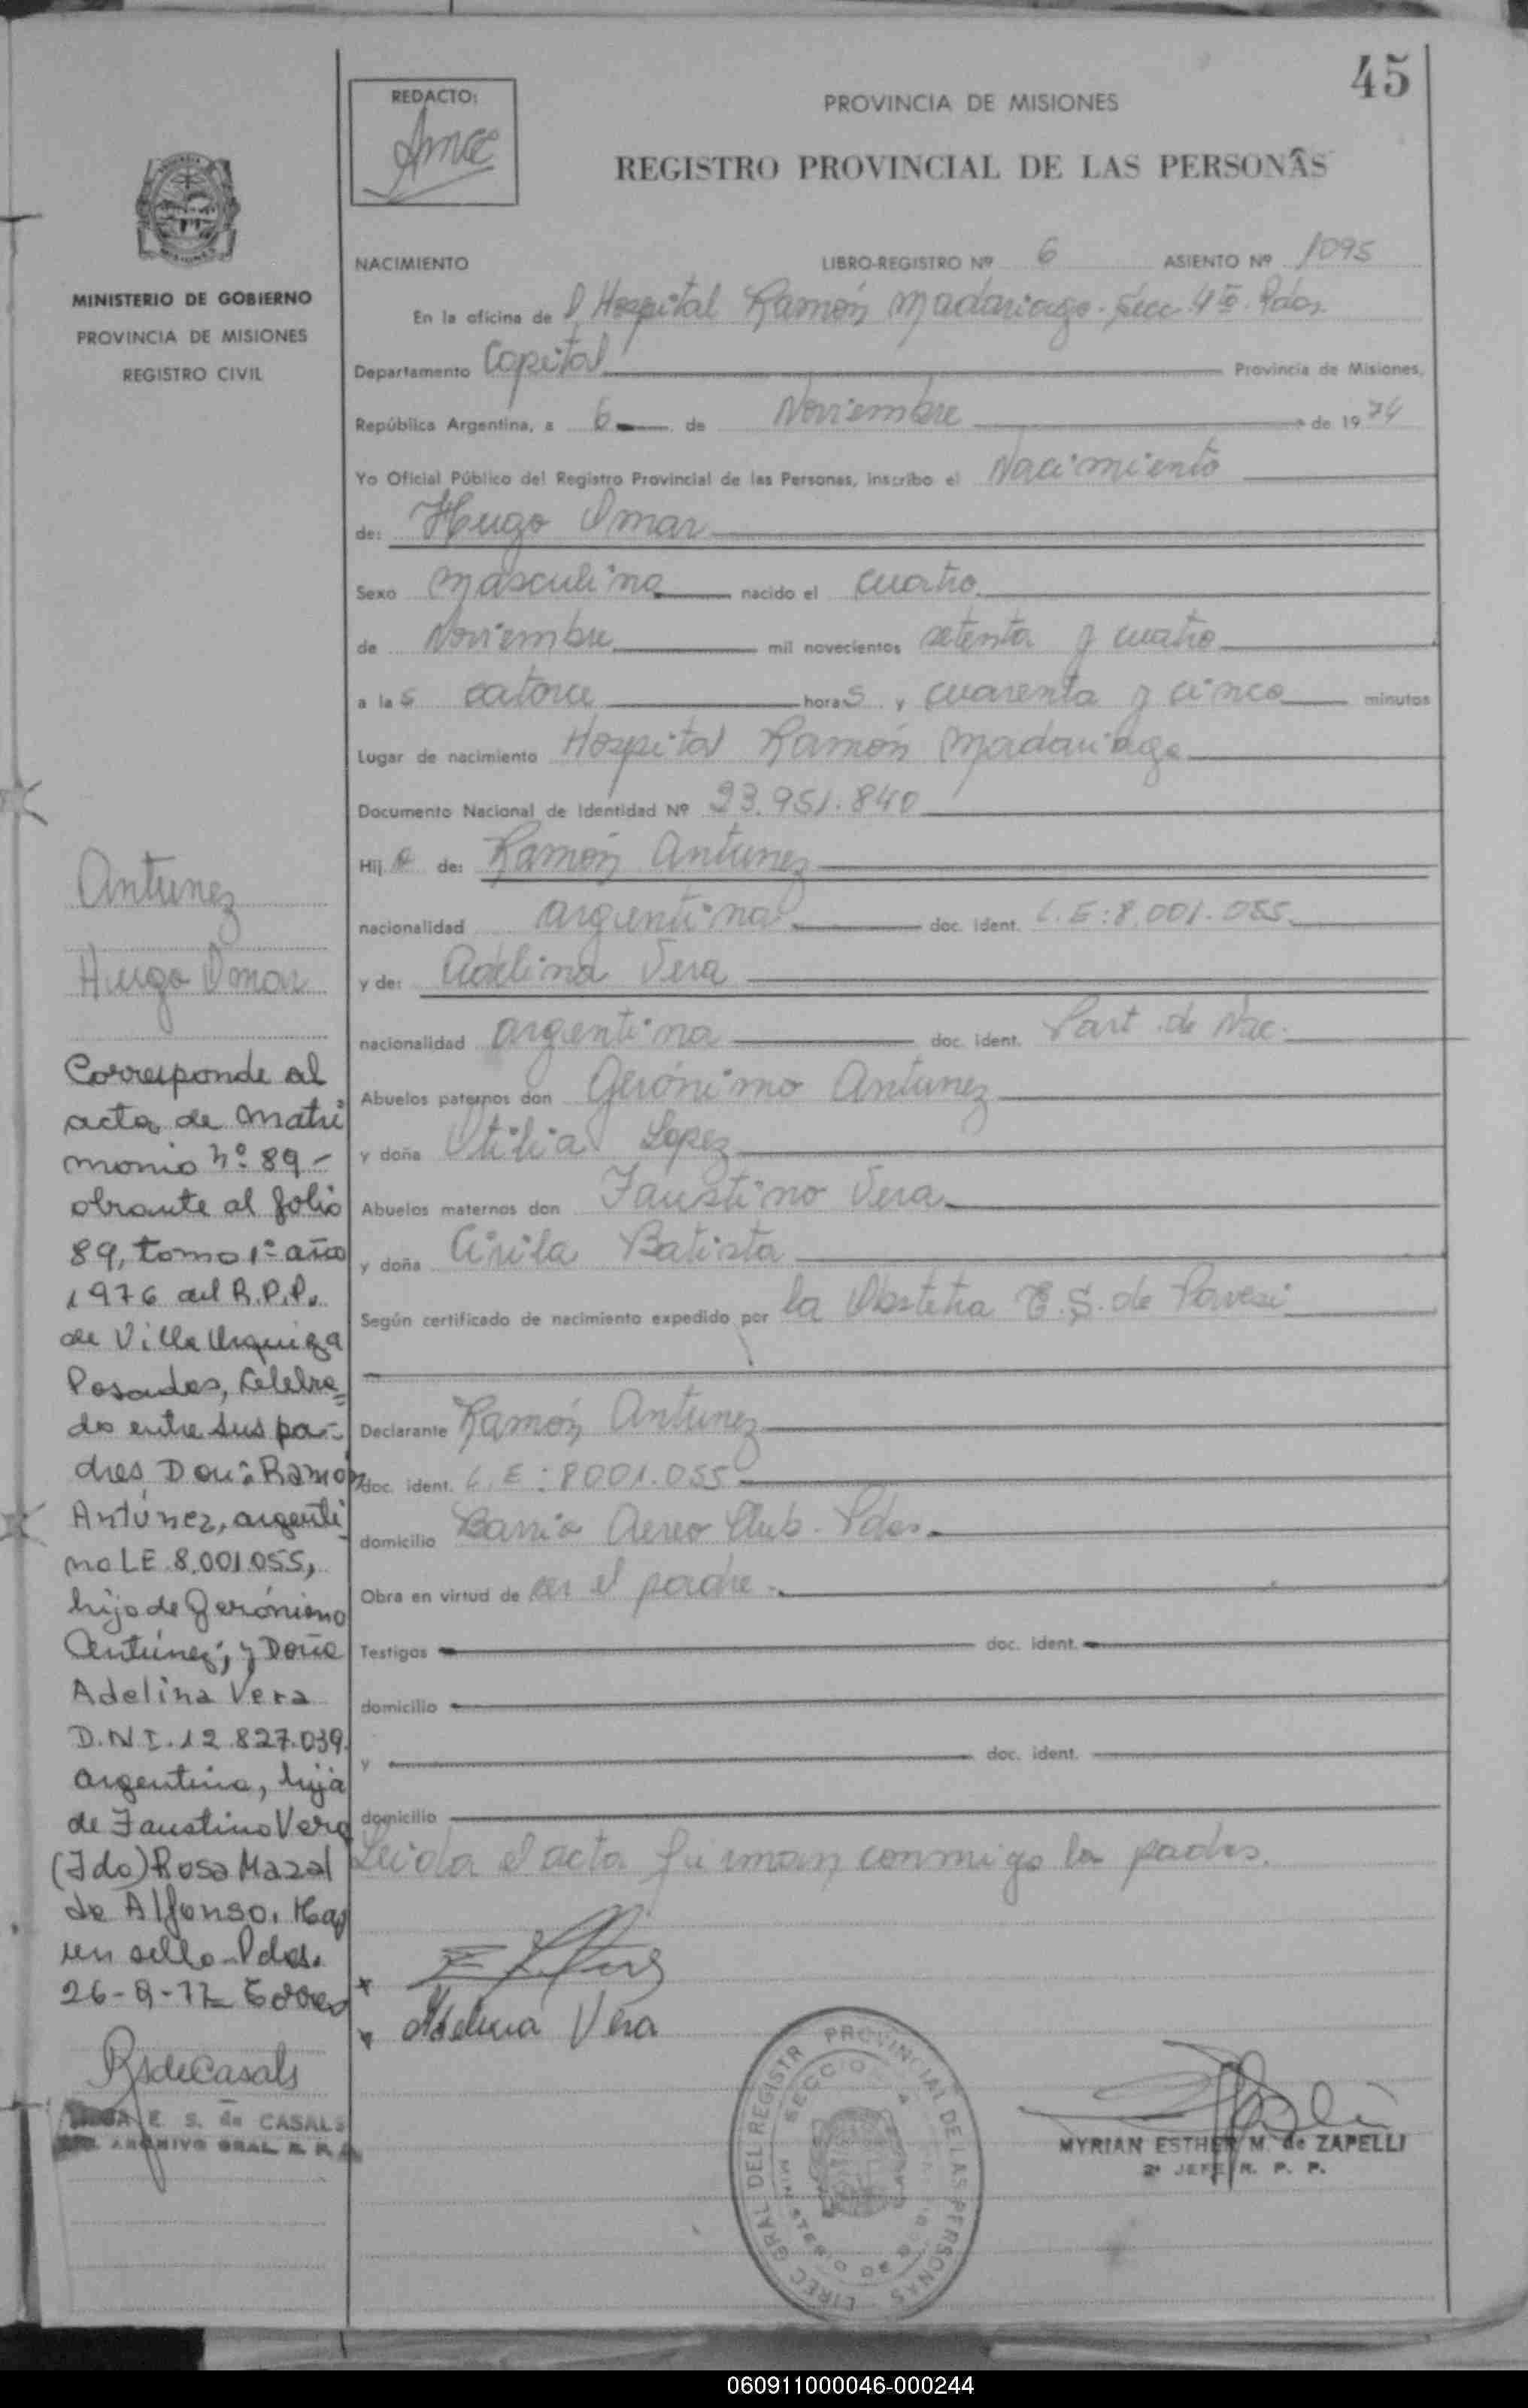 45
REDACTO:
PROVINCIA DE MISIONES
REGISTRO PROVINCIAL DE LAS PERSONAS
MINISTERIO DE GOBIERNO
PROVINCIA DE MISIONES
REGISTRO CIVIL
NACIMIENTO LIBRO-REGISTRO Nº 6 ASIENTO Nº 1095
En la oficina de Hospital Ramón Madariaga. Secc 4ta. Pdas.
Departamento Capital Provincia de Misiones,
República Argentina, a 6 de Noviembre de 1974
Yo Oficial Público del Registro Provincial de las Personas, inscribo el Nacimiento
de: Hugo Omar
Sexo masculino nacido el cuatro
de Noviembre mil novecientos setenta y cuatro
a las catorce horas y cuarenta y cinco minutos
Lugar de nacimiento Hospital Ramón Madariaga
Documento Nacional de Identidad Nº 23.951.840
Hijo de: Ramón Antunez
nacionalidad argentina doc. ident. L.E: 8.001.055
y de: Adelina Vera
nacionalidad argentina doc. ident. Part. de Nac.
Abuelos paternos don Gerónimo Antunez
y doña Otilia Lopez
Abuelos maternos don Faustino Vera
y doña Cirila Batista
Según certificado de nacimiento expedido por la Obstetra E.S. de Pavesi
Declarante Ramón Antunez
doc. ident. L.E: 8001.055
domicilio Barrio Aereo Club. Pdas.
Obra en virtud de ser el padre.
Testigos doc. ident.
domicilio
y doc. ident.
domicilio
Leida el acta firman conmigo los padres.
Adelina Vera
DIREC GRAL DEL REGISTR PROVINCIAL DE LAS PERSONAS
SECCIO 4
MYRIAN ESTHER M. de ZAPELLI
2º JEFE R. P. P.
Antunez
Hugo Omar
Corresponde al
acta de Matri
monio Nº 89-
obrante al folio
89, tomo 1º año
1976 del R.P.P.
de Villa Urquiza
Posadas, Celebra=
do entre sus pa-
dres Don: Ramón
Antúnez, argenti
no LE 8.001.055,
hijo de Gerónimo
Antúnez; y Doña
Adelina Vera
D.N.I. 12.827.039.
argentina, hija
de Faustino Vera
(Fdo) Rosa Mazal
de Alfonso. Hay
un sello-Pdas.
RsdeCasals
E. S. de CASALS
ARCHIVO GRAL R. P. P.
060911000046-000244